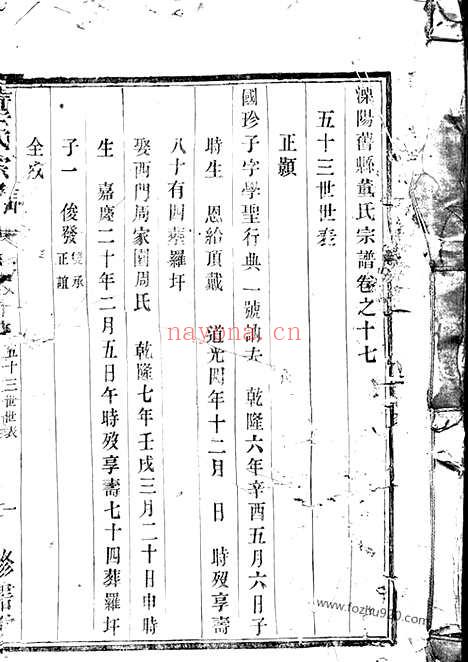 溧陽舊縣董氏宗譜卷之十七
五十三世世表
正顥
國珍子字學聖行典一號 乾隆六年辛酉五月六日子
時生 恩給頂戴 道光四年十二月 日 時歿享壽
八十有四葬羅圩
娶西門周家園周氏 乾隆七年壬戌三月二十日申時
生 嘉慶二十年二月五日午時歿享壽七十四葬羅圩
子一 俊發 承
正誼
董氏宗譜
五十三世世表
一
nayona.cn
www.fozhu920.com